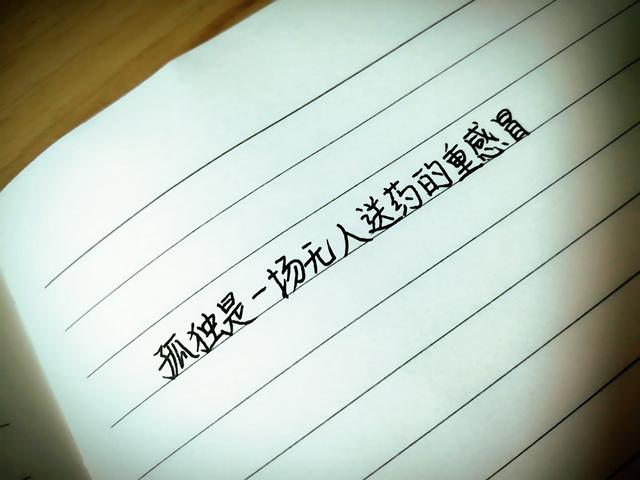 孤独是一场无人送药的重感冒